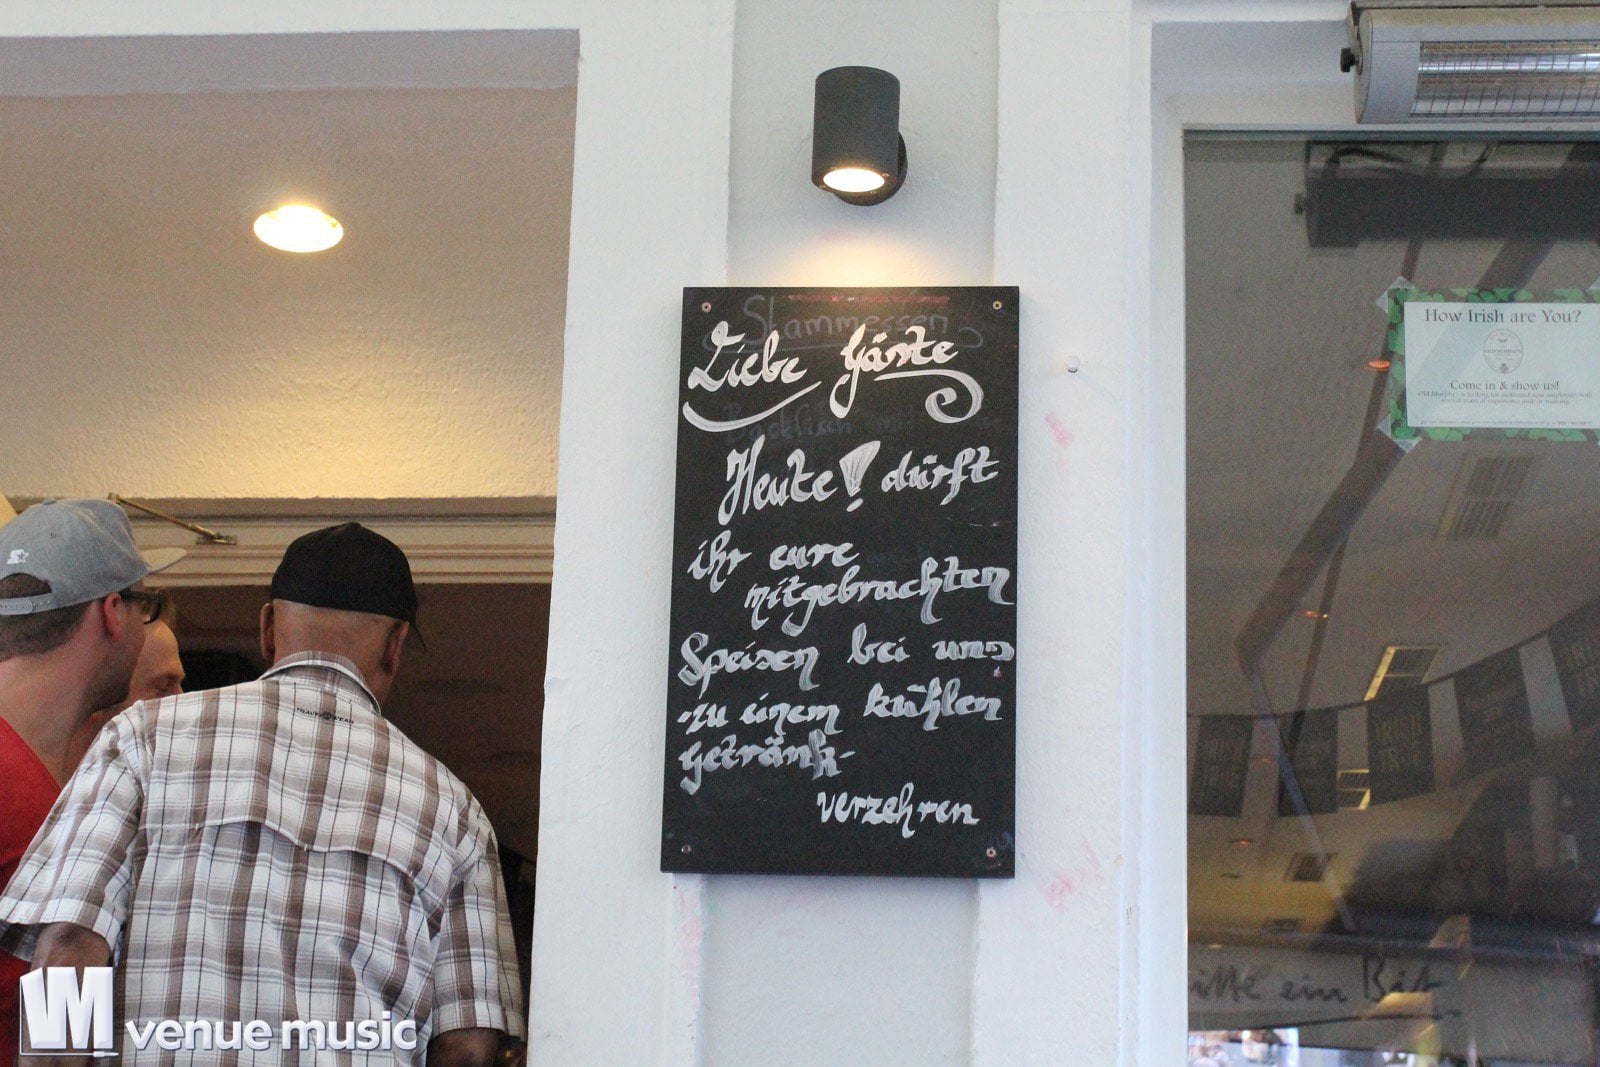 Stammessen
Liebe Gäste
Backfisch mit
Heute! dürft
ihr eure
mitgebrachten
Speisen bei uns
zu einem kühlen
getränk-
verzehren
How Irish are You?
Come in & show us!
TRAVEL WEAR
Bitte ein Bit
venue music